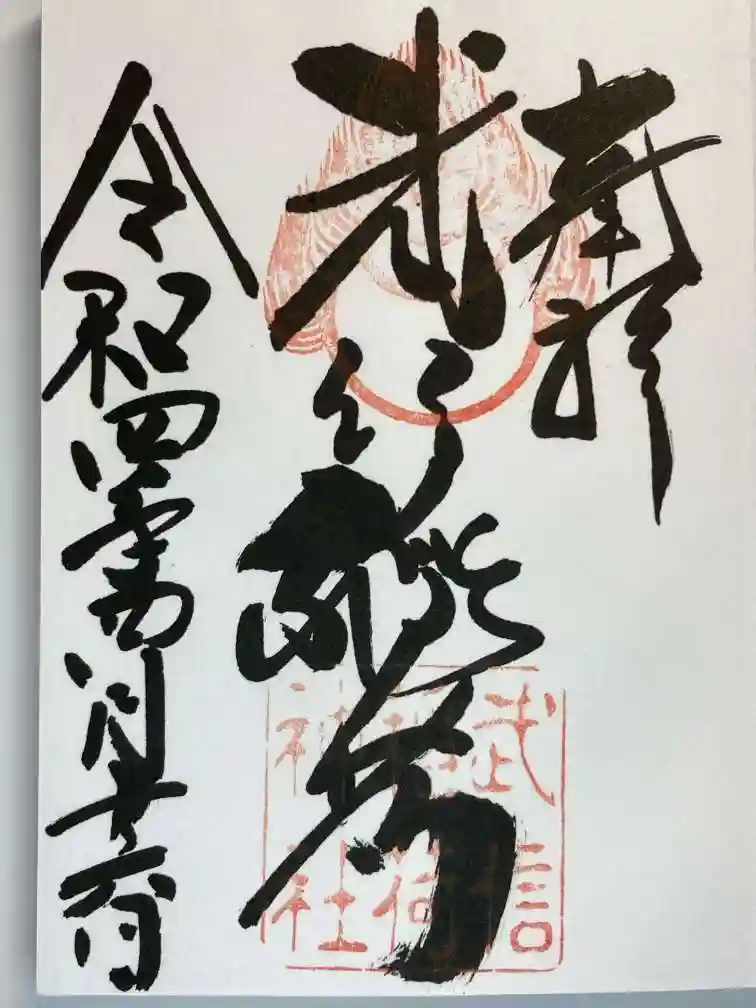 奉拝
武信稲荷
令和四年 月
武信
稲荷
神社